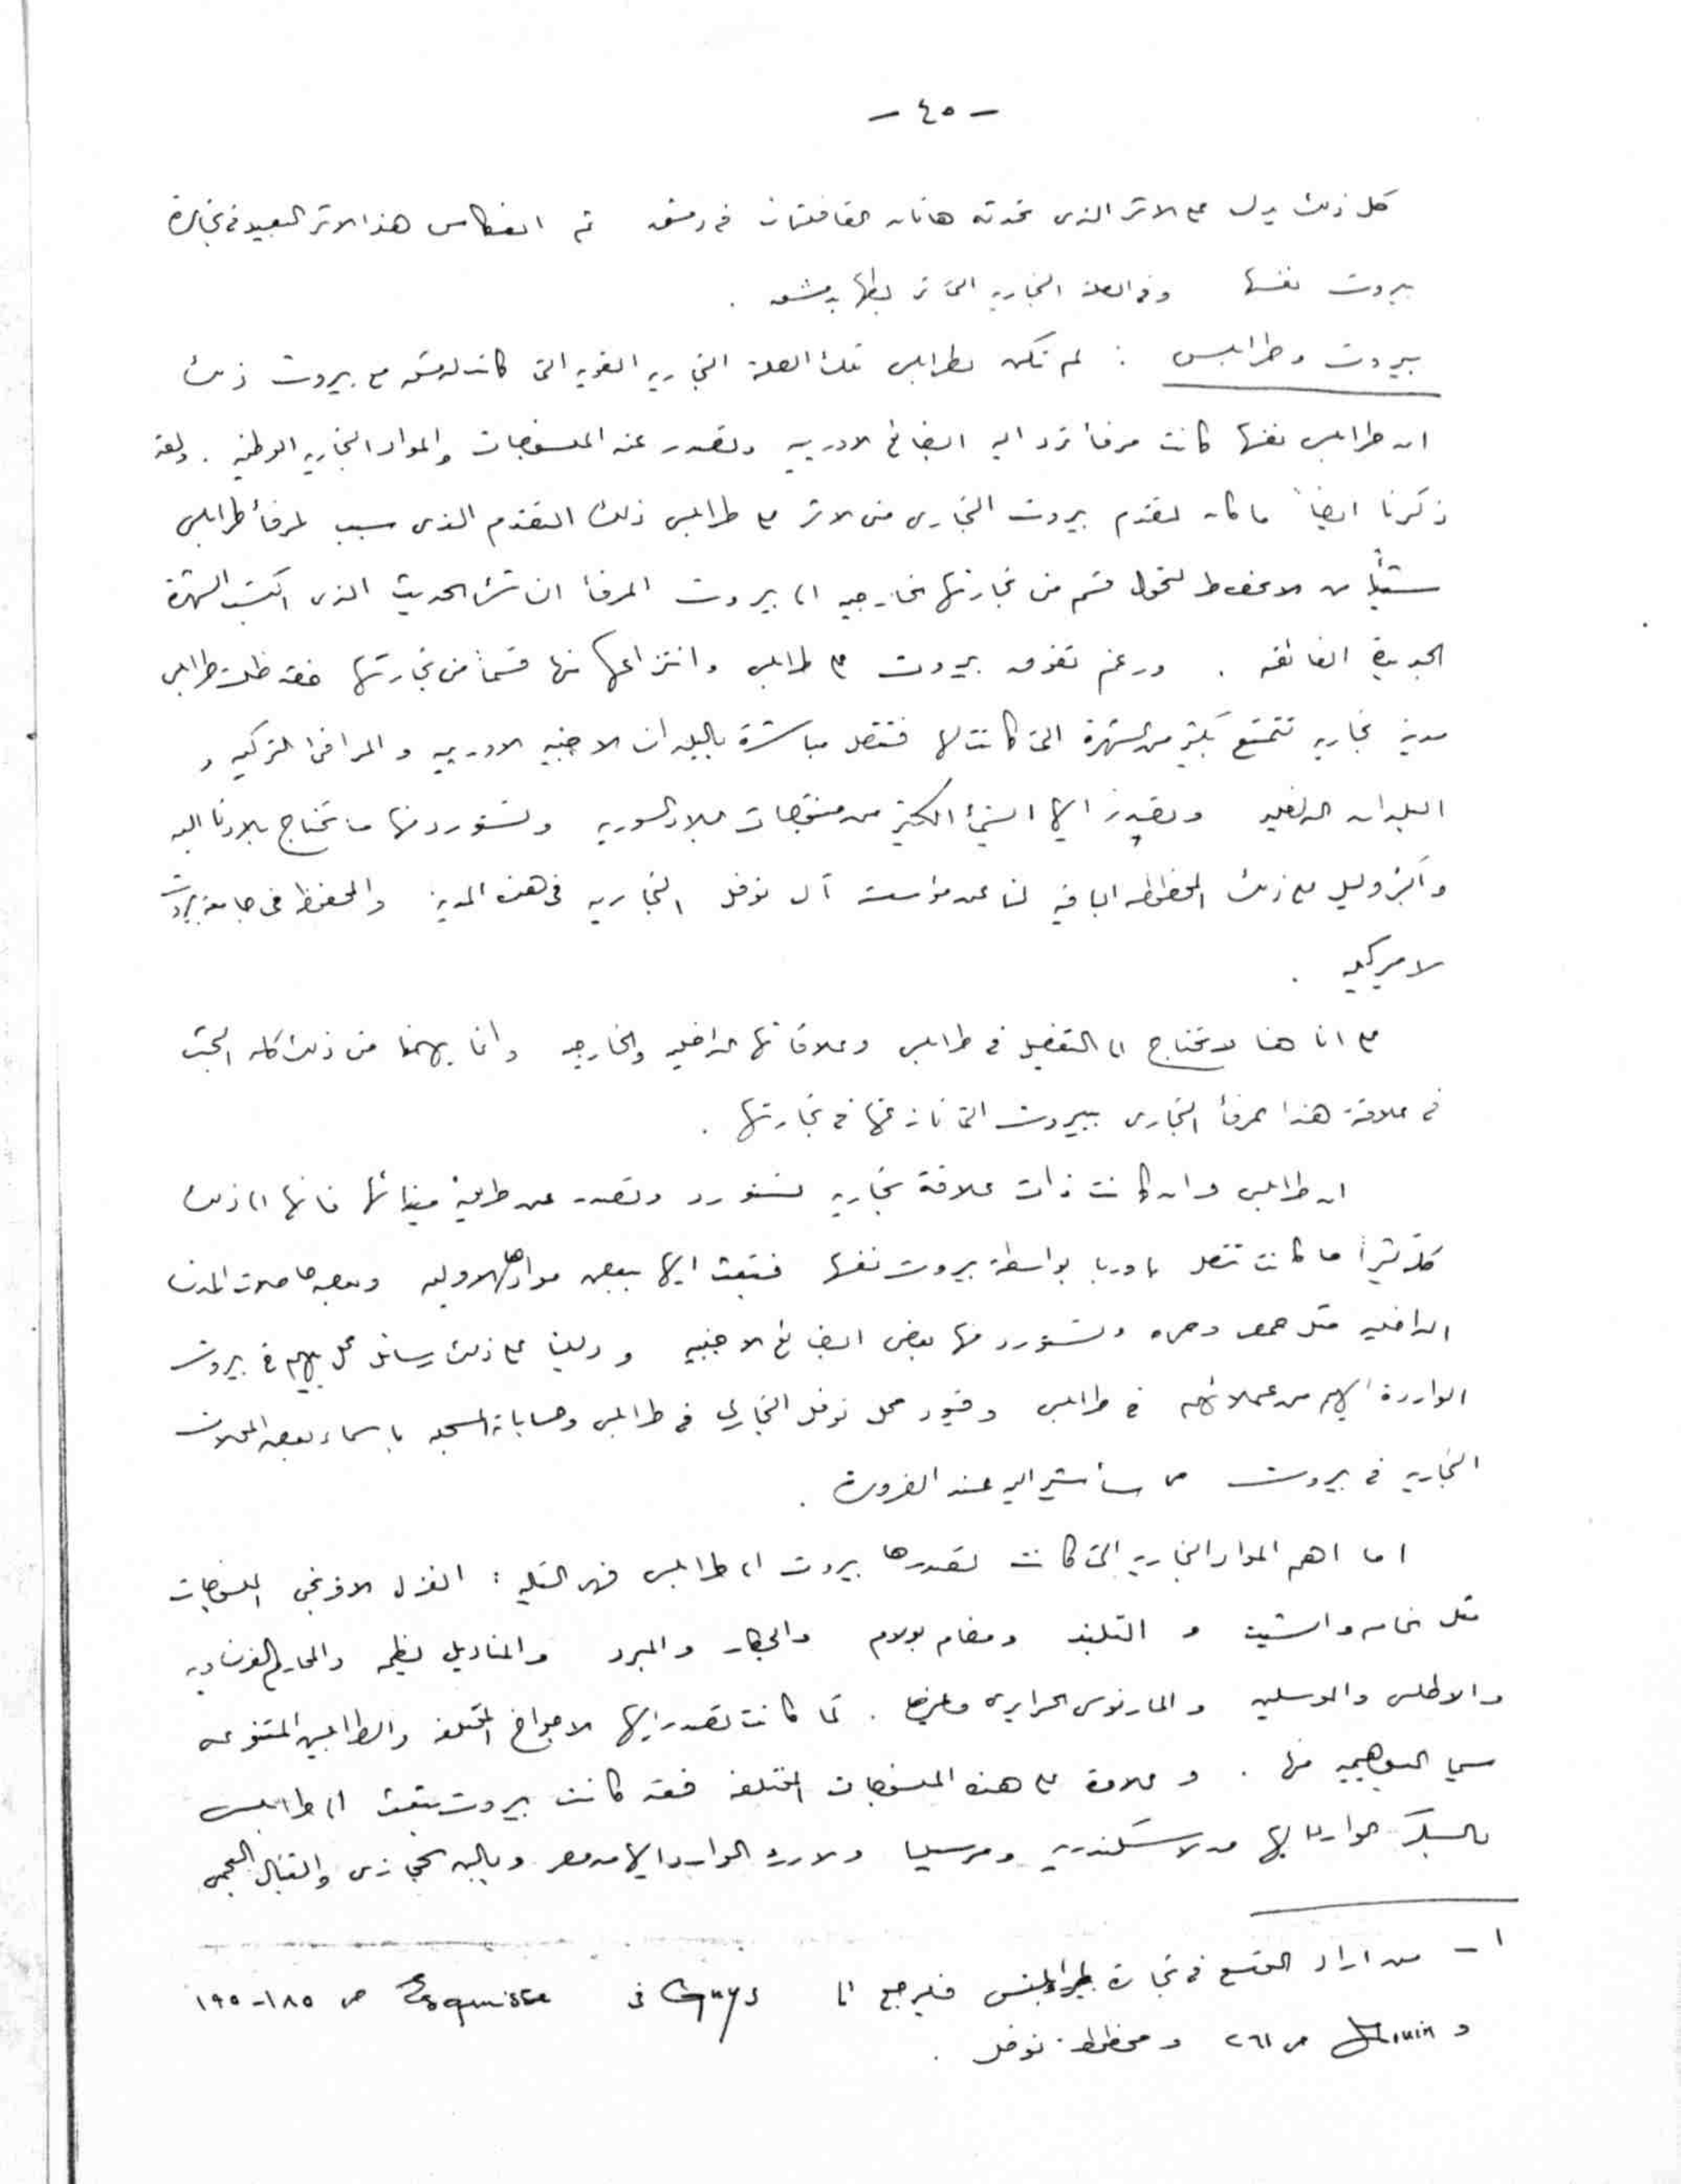 - ٤٥ -
كل ذلك يدل على الاثر الذى تحدثه هاتان القافلتان فى دمشق ثم انعكاس هذا الاثر البعيد فى تجارة
بيروت نفسها وفى الصلة التجاريه التى تربطها بدمشق .
بيروت وطرابلس : لم تكن لطرابلس تلك الصلة التجاريه القويه التى كانت لدمشق مع بيروت ذلك
ان طرابلس نفسها كانت مرفأ ترد اليه البضائع الاوربيه وتصدر عنه المنسوجات والمواد التجاريه الوطنيه . ولقد
ذكرنا ايضاً ما كان لتقدم بيروت التجارى من الاثر على طرابلس ذلك التقدم الذى سبب لمرفأ طرابلس
شيئاً من الانحطاط لتحول قسم من تجارتها الخارجيه الى بيروت المرفأ الناشئ الحديث الذى اكتسب الشهرة
الجديدة الفائقه . ورغم تفوق بيروت على طرابلس وانتزاعها منها قسماً من تجارتها فقد ظلت طرابلس
مدينة تجاريه تتمتع بكثير من الشهرة التى كانت لها فتتصل مباشرة بالبلدان الاجنبيه الاوربيه والمرافئ التركيه و
البلدان الداخليه وتصدر اليها الشئ الكثير من منتوجات البلاد السوريه وتستورد منها ما تحتاج بلادنا اليه
واكبر دليل على ذلك المخطوطه الباقيه لنا عن مؤسسة آل نوفل التجاريه فى هذه المدينة والمحفوظ فى جامعة بيروت
الاميركيه .
على انا هنا لا نحتاج الى التفصيل فى طرابلس وعلاقاتها الداخليه والخارجيه وانما يهمنا من ذلك كله البحث
فى علاقة هذا المرفأ التجارى ببيروت التى نازعتها فى تجارتها .
ان طرابلس وان كانت ذات علاقة تجاريه تستورد وتصدر عن طريق مينائها فانها الى ذلك
كله كثيراً ما كانت تتصل باوربا بواسطة بيروت نفسها فتبعث اليها ببعض موادها الاوليه وبعض حاصلات المدن
الداخليه مثل حمص وحماه وتستورد منها بعض البضائع الاجنبيه و دليلنا على ذلك رسائل محل بيهم فى بيروت
الواردة اليهم من عملائهم فى طرابلس وقيود محل نوفل التجارى فى طرابلس وحساباته المسجله باسماء بعض المحلات
التجاريه فى بيروت مما سأشير اليه عند الضرورة .
اما اهم المواد التجاريه التى كانت تصدرها بيروت الى طرابلس فهى التاليه : الغزل الافرنجى المنسوجات
مثل خام والشيت و التلبند ومقام بولام والجكار والمبرد والمناديل والمحارم الفرنساويه
والاطلس والموسلين و الحرايرى وغيرها . كما كانت تصدر اليها الاجواخ المختلفه والطرابيش المتنوعه
سي منها . و علاوة على هذه المنسوجات المختلفه فقد كانت بيروت تبعث الى طرابلس
بالسكر الوارد اليها من الاسكندريه ومرسيليا والارز الوارد اليها من مصر وبالبن الحجازى والتنباك العجمى
١ - من اراد التوسع فى تجارة طرابلس فليرجع الى Guys فى Esquisse ص ١٨٥-١٩٥
و ص ٢٦١ و مخطوطة نوفل .